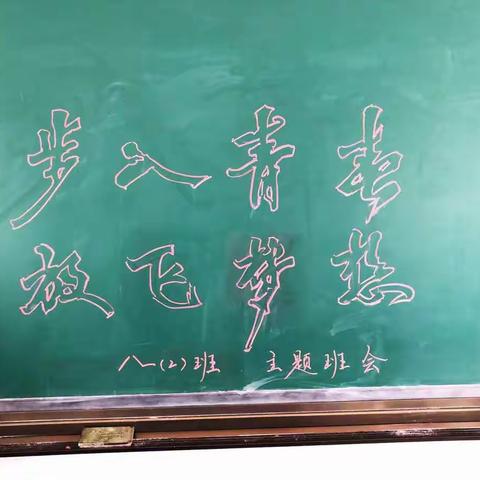 步入青春
放飞梦想
八一(2)班 主题班会